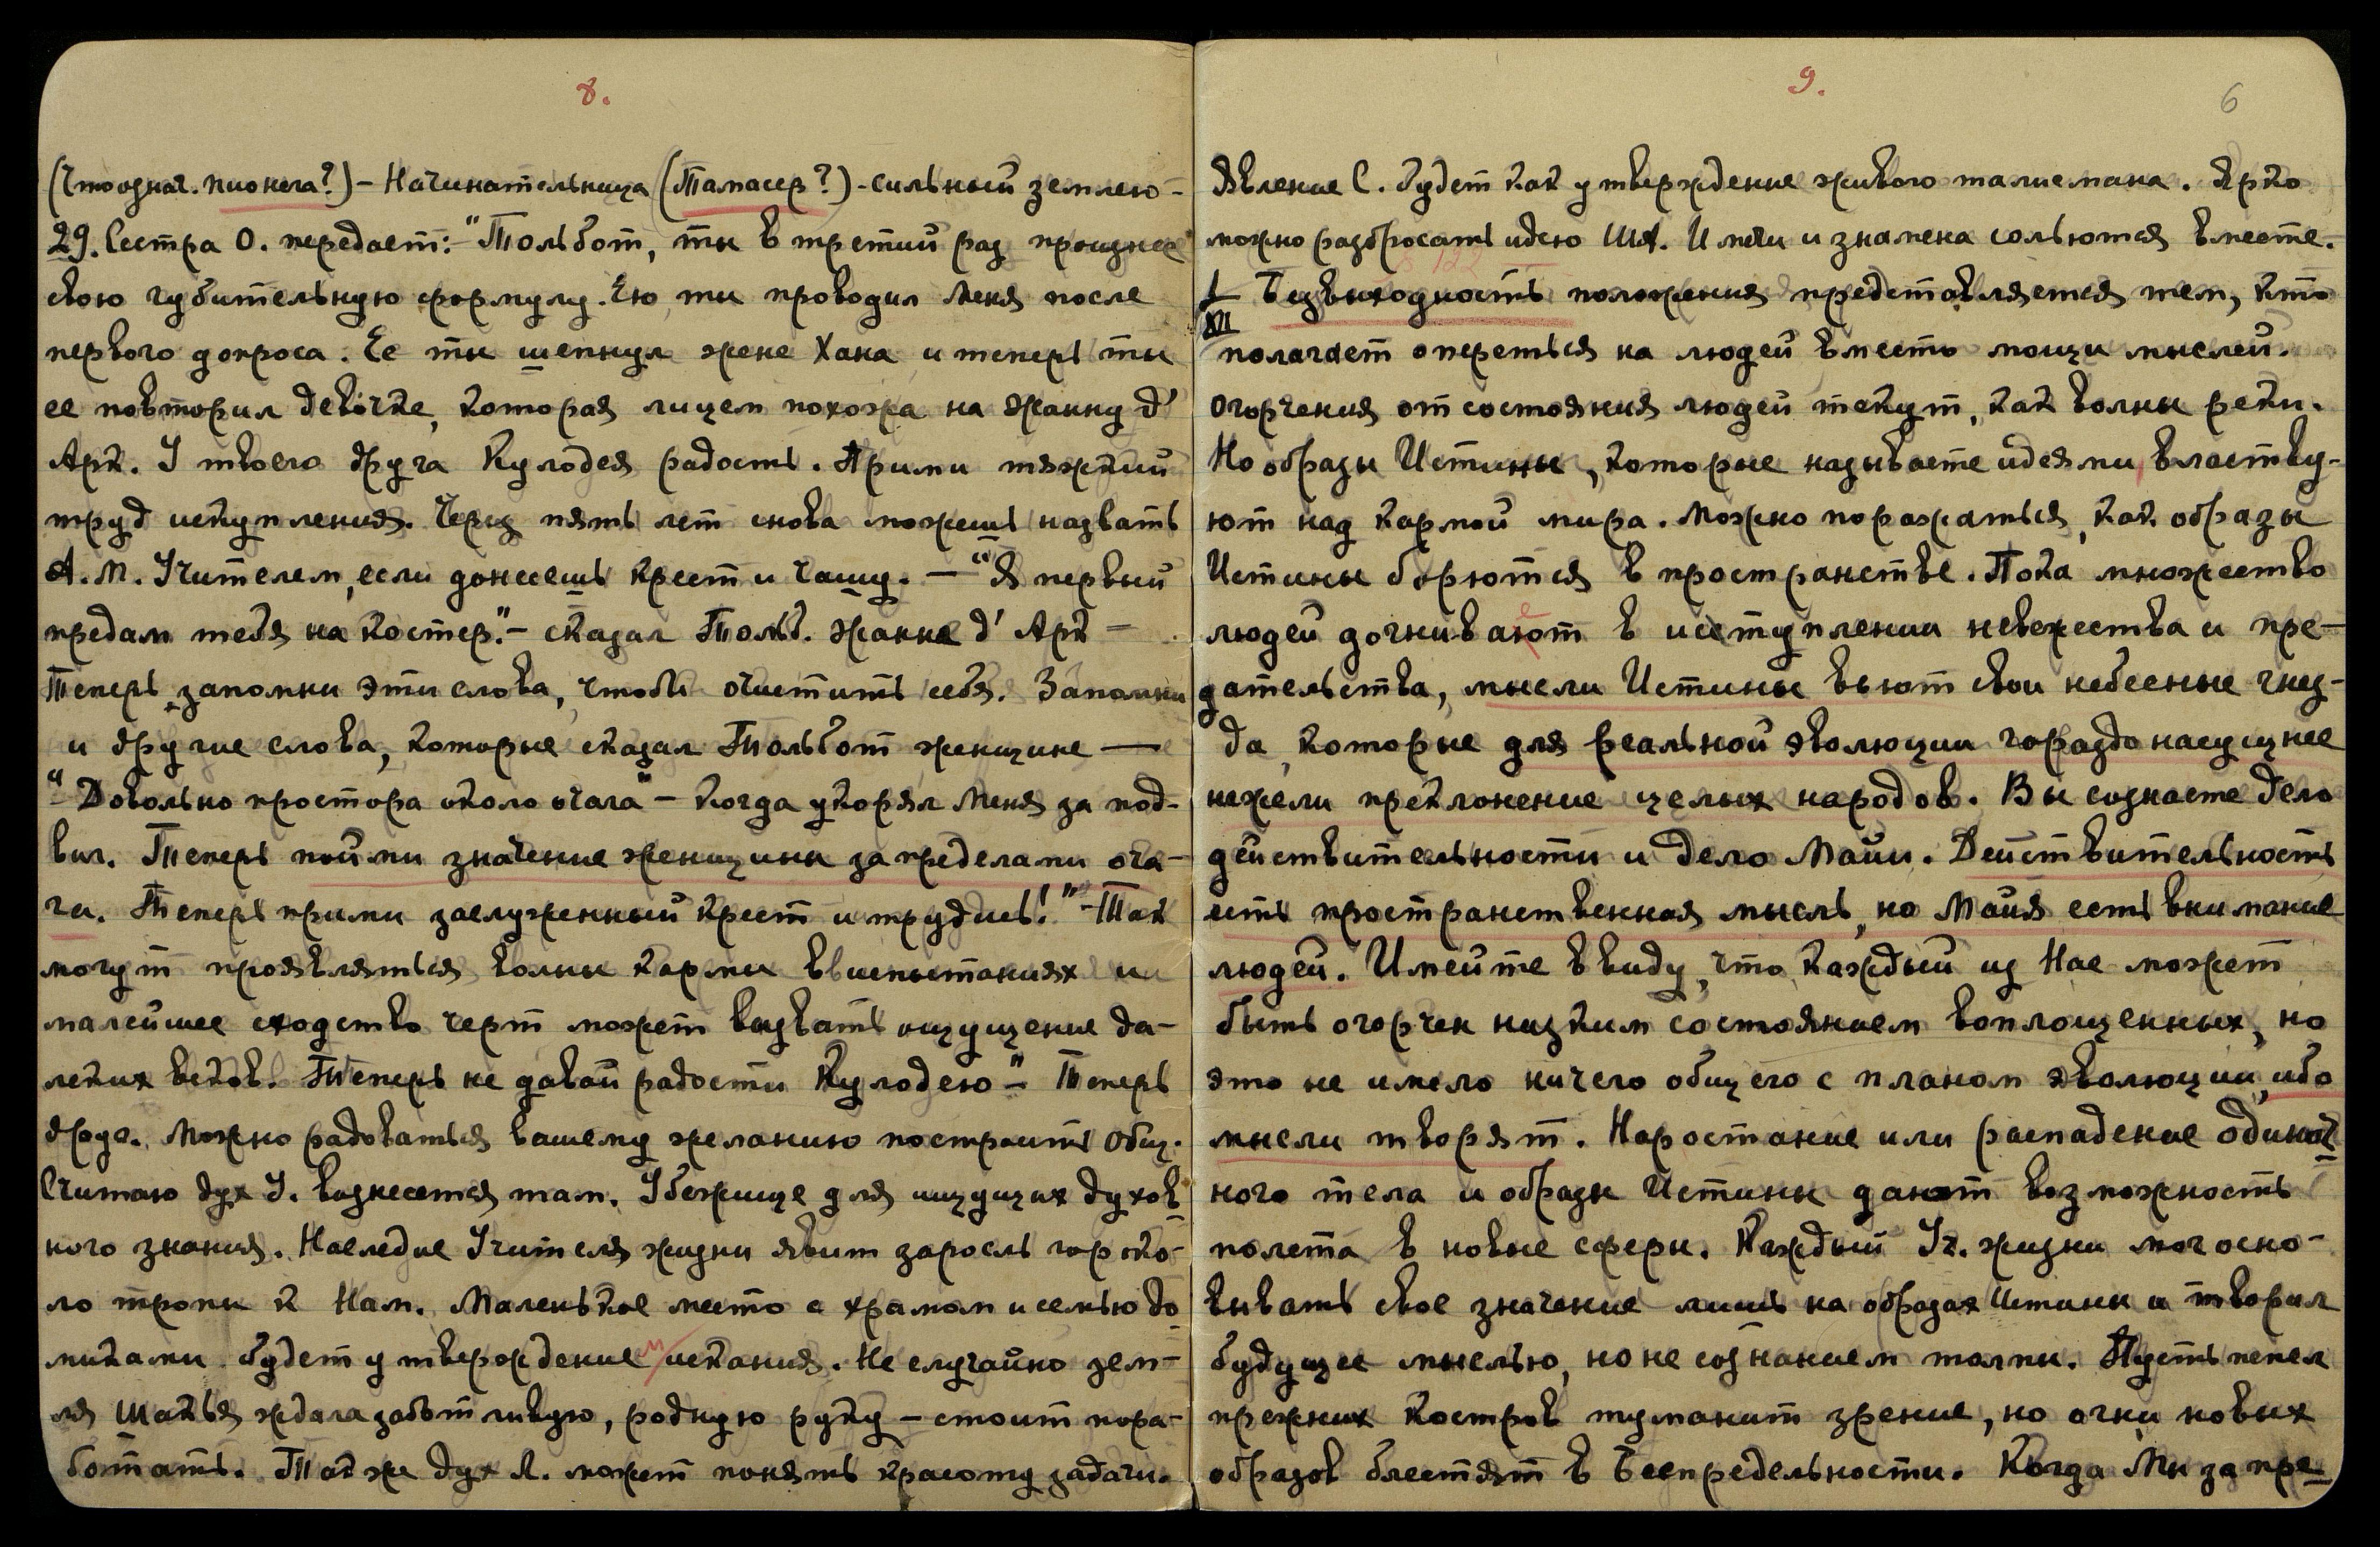 8.
(Что означ. пионега?) – Начинательница (Тамасер?) – сильный землею –
29. Сестра О. передает: – "Тольбот, ты в третий раз произнес
свою губительную формулу. Ею ты проводил Меня после
первого допроса. Ее ты шепнул жене Хана и теперь ты
ее повторил девочке, которая лицем похожа на Жанну д'
Арк. У твоего друга Кулодея радость. Прими тяжкий
труд искупления. Через пять лет снова можешь назвать
А. М. Учителем, если донесешь крест и чашу. – "Я первый
предам тебя на костер." – сказал Тольб. Жанне д' Арк –
Теперь запомни эти слова, чтобы очистить себя. Запомни
и другие слова, которые сказал Тольбот женщине —
"Довольно простора около очага" – когда укорял Меня за под-
виг. Теперь пойми значение женщины за пределами оча-
га. Теперь прими заслуженный крест и трудись!" – Так
могут проявляться волны кармы в испытаниях и
малейшее сходство черт может вызвать ощущение да-
леких веков. Теперь не давай радости Кулодею –" Теперь
друг. Можно радоваться вашему желанию построить общ.
Считаю дух У. вознесется там. Убежище для ищущих духов-
ного знания. Наследие Учителя жизни явит заросль горско-
ло тропы к Нам. Маленькое место с храмом и семью до-
миками будет утверждение искания. Не случайно зем-
ля Шакья ждала заботливую, родную руку – стоит пора-
ботать. Так же дух Л. может понять красоту задачи.
9.
6
Явление С. будет как утверждение живого талисмана. Ярко
можно разбросать идею Шл. И мечи и знамена сольются вместе.
1 Безвыходность положения представляется тем, кто
XII
полагает опереться на людей вместо мощи мыслей.
Огорчения от состояния людей текут, как волны реки.
Но образы Истины, которые называете идеями, властву-
ют над кармой мира. Можно поражаться, как образы
Истины борются в пространстве. Пока множество
людей догнивают в исступлении невежества и пре-
дательства, мысли Истины вьют свои небесные гнез-
да, которые для реальной эволюции гораздо насущнее
нежели преклонение целых народов. Вы сознаете дело
действительности и дело Майи. Действительность
есть пространственная мысль, но Майя есть внимание
людей. Имейте в виду, что каждый из Нас может
быть огорчен низким состоянием воплощенных, но
это не имело ничего общего с планом эволюции, ибо
мысли творят. Наростание или распадение одинак-
ного тела и образы Истины дают возможность
полета в новые сферы. Каждый Уч. жизни мог осно-
вывать свое значение лишь на образах Истины и творил
будущее мыслью, но не сознанием толпы. Пусть пепел
прежних костров туманит зрение, но огни новых
образов блестят в Беспредельности. Когда Мы за пре-